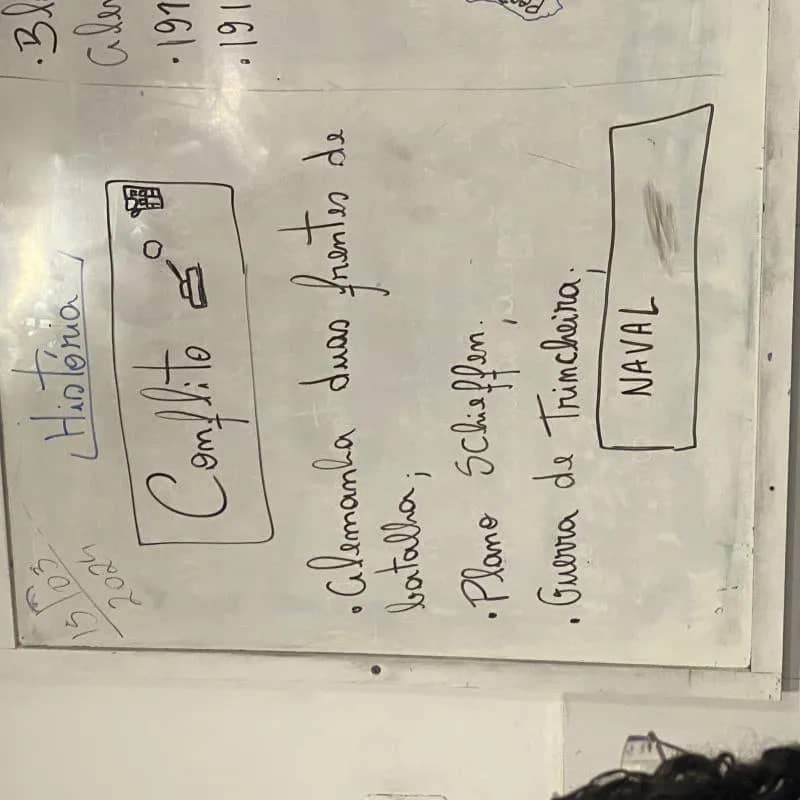 15/03
2024
História
Conflito
• Alemanha duas frentes de
batalha;
• Plano Schieffen.
• Guerra de Trincheira.
NAVAL
• Bl
Alem
• 191
• 191